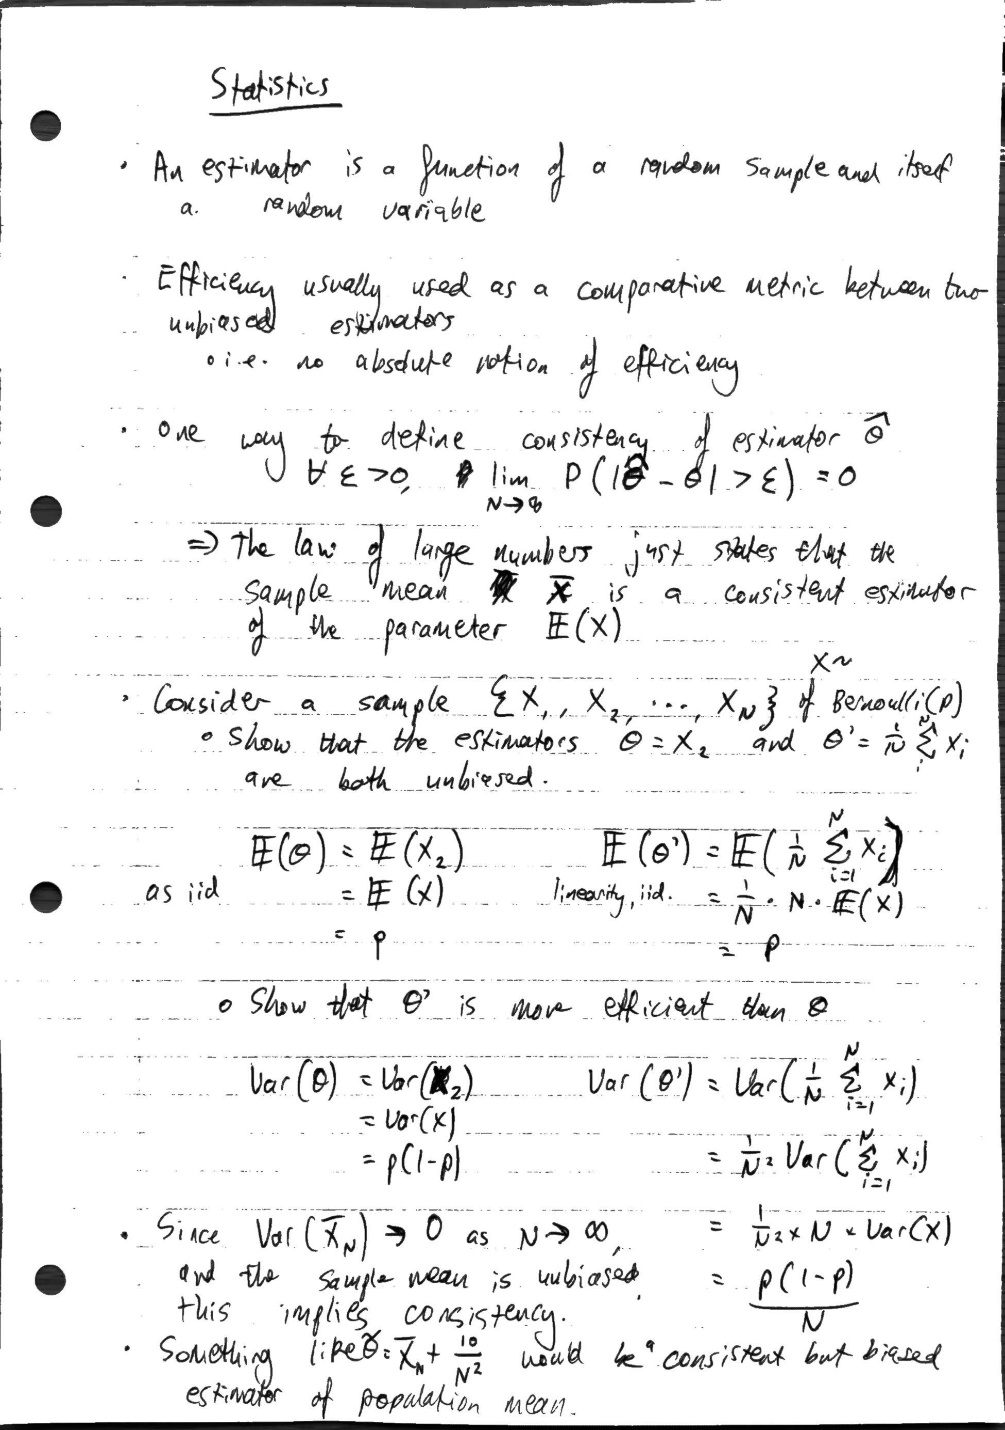 Statistics
• An estimator is a function of a random sample and itself
a random variable
• Efficiency usually used as a comparative metric between two
unbiased estimators
∘ i.e. no absolute notion of efficiency
• One way to define consistency of estimator θ̂
∀ ε > 0, lim_{N→∞} P(|θ̂ - θ| > ε) = 0
⇒ The law of large numbers just states that the
sample mean X̄ is a consistent estimator
of the parameter 𝔼(X)
• Consider a sample {X₁, X₂, ..., X_N} of X ~ Bernoulli(p)
∘ Show that the estimators θ = X₂ and θ' = 1/N Σ_i^N X_i
are both unbiased.
𝔼(θ) = 𝔼(X₂) 𝔼(θ') = 𝔼(1/N Σ_{i=1}^N X_i)
as iid = 𝔼(X) linearity, iid. = 1/N · N · 𝔼(X)
= p = p
∘ Show that θ' is more efficient than θ
Var(θ) = Var(X₂) Var(θ') = Var(1/N Σ_{i=1}^N X_i)
= Var(X)
= p(1-p) = 1/N² Var(Σ_{i=1}^N X_i)
= 1/N² × N × Var(X)
= p(1-p)/N
• Since Var(X̄_N) → 0 as N → ∞,
and the sample mean is unbiased,
this implies consistency.
• Something like θ̃ = X̄_N + 10/N² would be a consistent but biased
estimator of population mean.